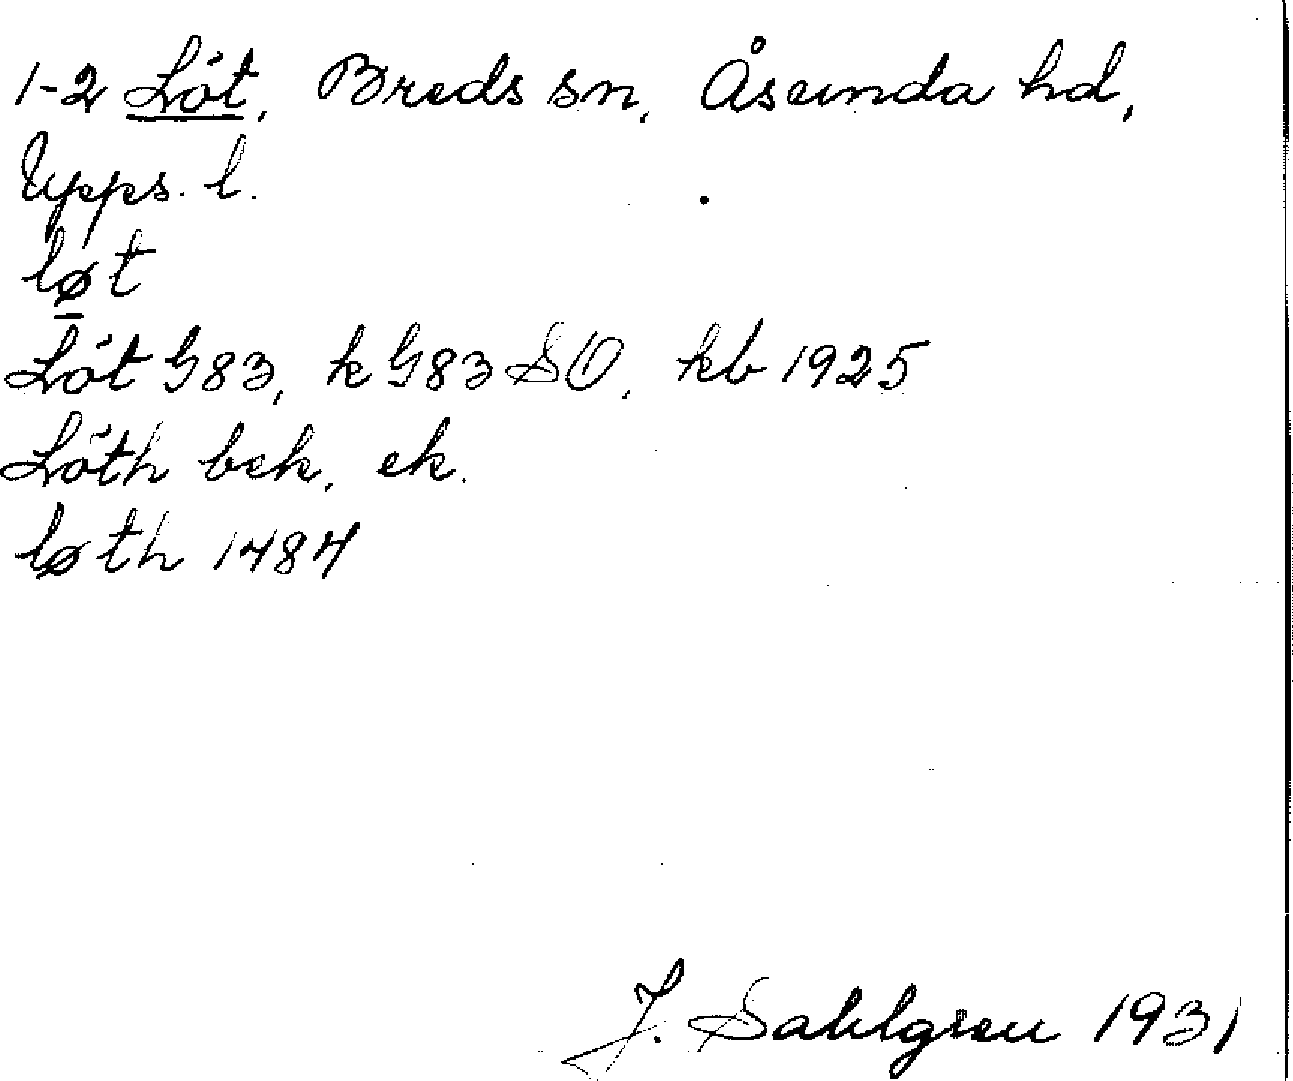 1-2 Löt, Breds sn, Åsunda hd,
Upps. l.
lø̱t
Löt G83, k G83 SO, kb 1925
Löth bek, ek.
løth 1484
J. Sahlgren 1931